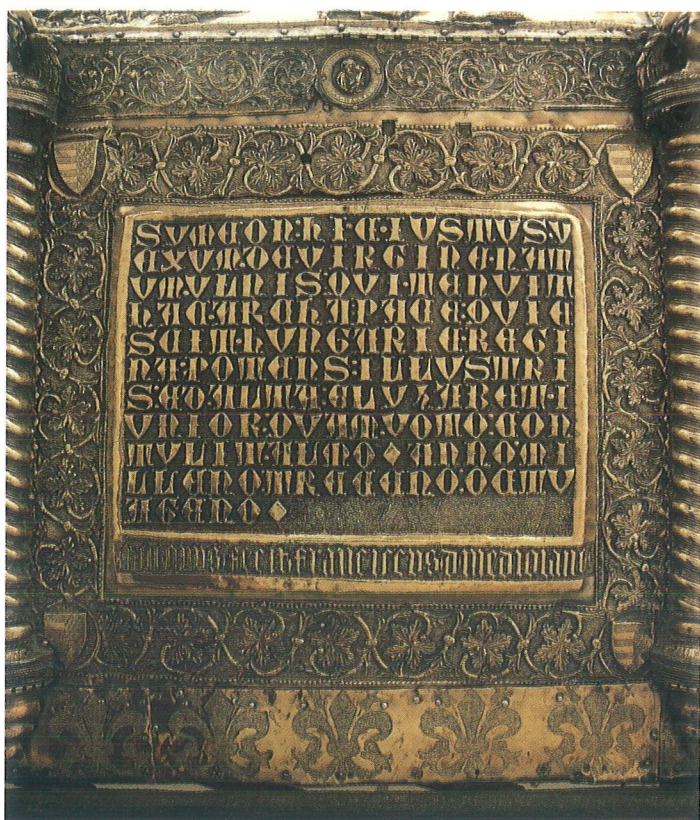 SYMEON:HIC·IUSTUS·Y
EXUM·DE VIRGINE·NAT
UM·ULNIS:QUI·TENUIT
HAC·ARCHA·PACE:QUIE
SCIT·HUNGARIE·REGI
NA·POTENS:ILLUSTRI
S:ED·ALTA:ELYZABET·I
UNIOR:QUAM·VOTO:CON
TULIT·ALMO◆ANNO·MI
LLENO:TRECENO:OCTU
AGENO◆
hoc opus fecit franciscus d mediolano